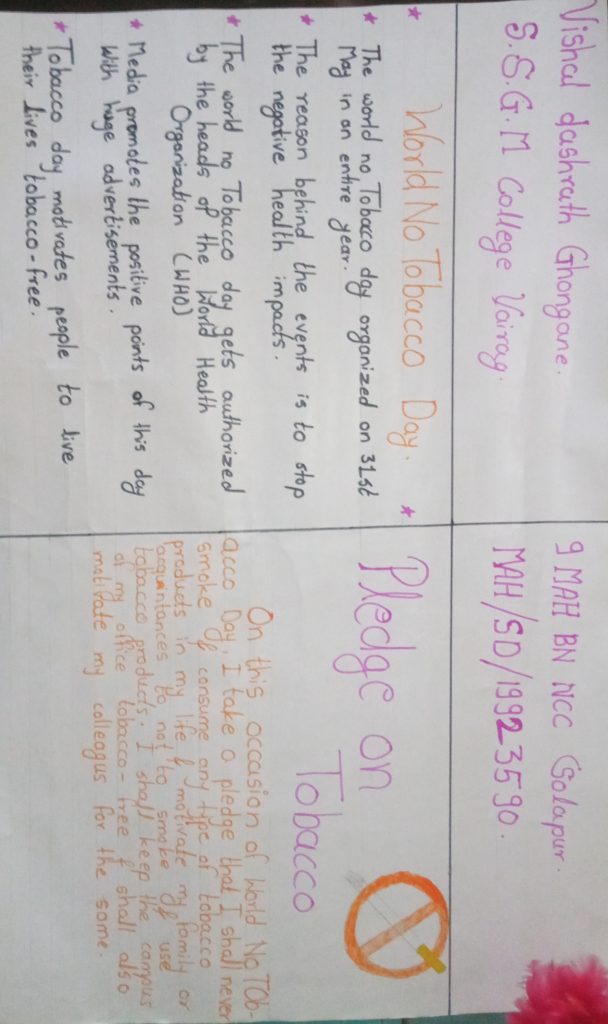 Vishal dashrath Ghongane.
S.S.G.M College Vairag.
9 MAH BN NCC Solapur.
MAH/SD/19923590.
World No Tobacco Day.
* The world no Tobacco day organized on 31st
May in an entire year.
* The reason behind the events is to stop
the negative health impacts.
* The world no Tobacco day gets authorized
by the heads of the World Health
Organization (WHO)
* Media promotes the positive points of this day
With huge advertisements.
* Tobacco day motivates people to live
their lives tobacco-free.
Pledge on
Tobacco
On this occasion of World No TOb-
acco Day, I take a pledge that I shall never
smoke & consume any type of tobacco
products in my life & motivate my family or
acquintances to not to smoke & use
tobacco products. I shall keep the campus
of my office tobacco-free & shall also
motivate my colleagus for the same.